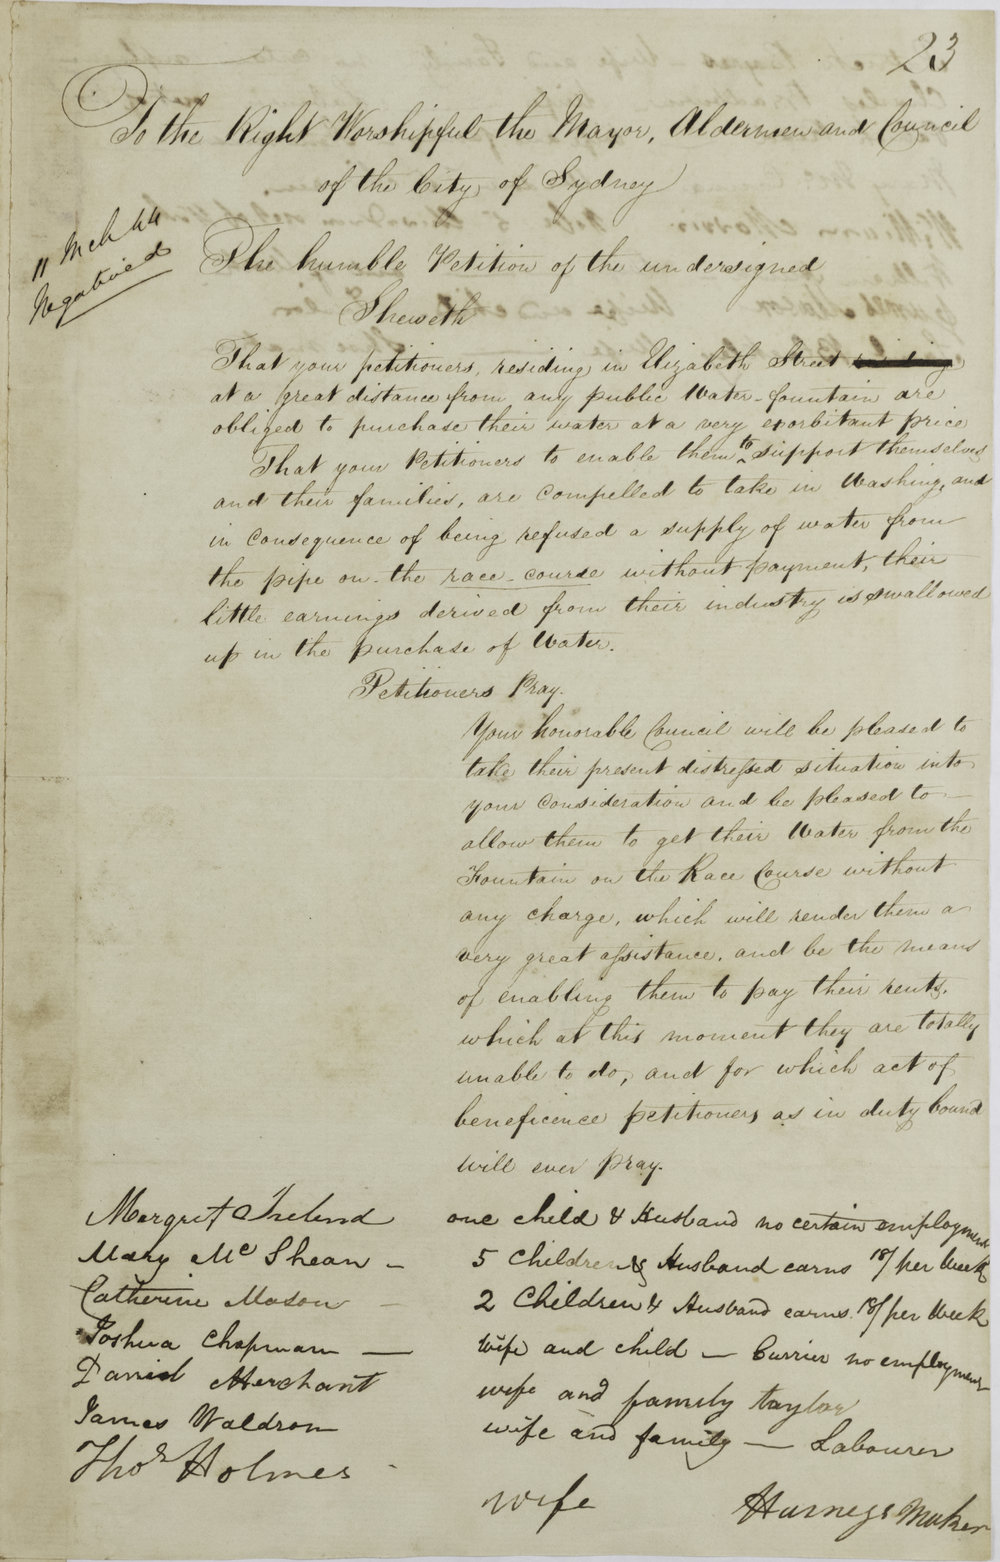 23
To the Right Worshipful the Mayor, Aldermen and Council
of the City of Sydney
11 Mch 44
Negatived
The humble Petition of the undersigned
Sheweth
That your petitioners, residing in Elizabeth Street
at a great distance from any public Water-fountain are
obliged to purchase their water at a very exorbitant price
That your Petitioners to enable them to support themselves
and their families, are compelled to take in Washing, and
in consequence of being refused a supply of water from
the pipe on the race-course without payment, their
little earnings derived from their industry is swallowed
up in the purchase of Water.
Petitioners Pray.
Your honorable Council will be pleased to
take their present distressed situation into
your consideration and be pleased to
allow them to get their Water from the
Fountain on the Race Course without
any charge, which will render them a
very great assistance, and be the means
of enabling them to pay their rents,
which at this moment they are totally
unable to do, and for which act of
beneficence petitioners as in duty bound
will ever pray.
Margret Ireland one child & Husband no certain employment
Mary Mc Shean - 5 Children & Husband earns 18/ per Week
Catherine Mason - 2 Children & Husband earns 18/ per Week
Joshua Chapman - wife and child - Currier no employment
Daniel Merchant wife and family taylor
James Waldron wife and family - Labourer
Thos Holmes - wife Harness Maker